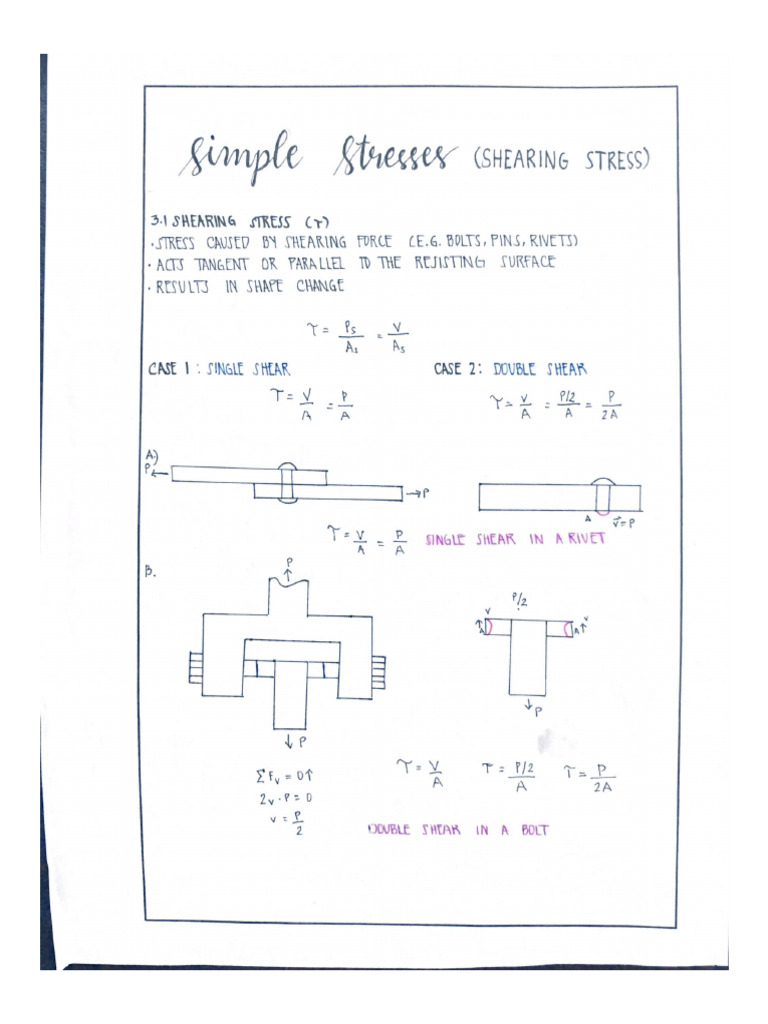 Simple Stresses (SHEARING STRESS)
3.1 SHEARING STRESS (τ)
• STRESS CAUSED BY SHEARING FORCE (E.G. BOLTS, PINS, RIVETS)
• ACTS TANGENT OR PARALLEL TO THE RESISTING SURFACE
• RESULTS IN SHAPE CHANGE
τ = Ps/As = V/As
CASE 1 : SINGLE SHEAR
CASE 2: DOUBLE SHEAR
τ = V/A = P/A
τ = V/A = P/2/A = P/2A
A.)
P
P
A
V = P
τ = V/A = P/A SINGLE SHEAR IN A RIVET
B.
P
P/2
V
V
A
A
P
P
ΣFv = 0↑
2v - P = 0
v = P/2
τ = V/A
τ = P/2/A
τ = P/2A
DOUBLE SHEAR IN A BOLT